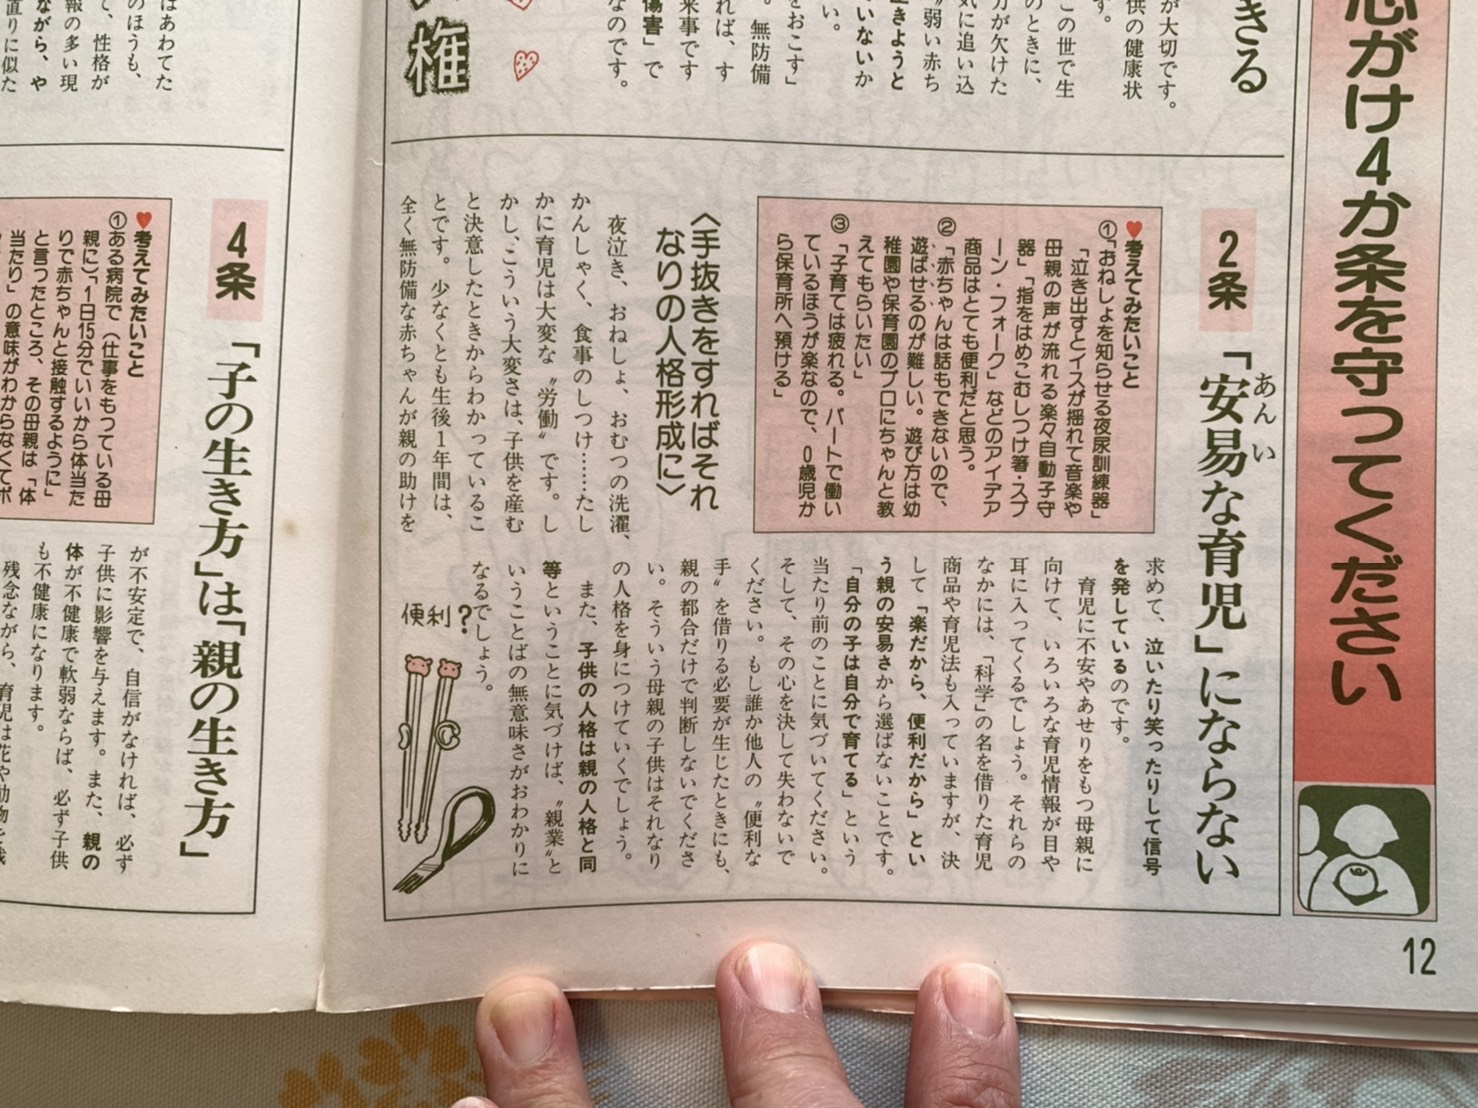 心がけ4か条を守ってください
きる
が大切です。
供の健康状
す。
この世で生
のときに、
力が欠けた
気に追い込
〝弱い赤ち
生きようと
いないか
い。
をおこす」
。無防備
れば、す
来事です
傷害」で
なのです。
権
2条
「安易な育児」にならない
あんい
♥考えてみたいこと
①「おねしょを知らせる夜尿訓練器」
「泣き出すとイスが揺れて音楽や
母親の声が流れる楽々自動子守
器」「指をはめこむしつけ箸・スプ
ーン・フォーク」などのアイデア
商品はとても便利だと思う。
②「赤ちゃんは話もできないので、
遊ばせるのが難しい。遊び方は幼
稚園や保育園のプロにちゃんと教
えてもらいたい」
③「子育ては疲れる。パートで働い
ているほうが楽なので、0歳児か
ら保育所へ預ける」
〈手抜きをすればそれ
なりの人格形成に〉
夜泣き、おねしょ、おむつの洗濯、
かんしゃく、食事のしつけ……たし
かに育児は大変な〝労働〟です。し
かし、こういう大変さは、子供を産む
と決意したときからわかっているこ
とです。少なくとも生後1年間は、
全く無防備な赤ちゃんが親の助けを
求めて、泣いたり笑ったりして信号
を発しているのです。
育児に不安やあせりをもつ母親に
向けて、いろいろな育児情報が目や
耳に入ってくるでしょう。それらの
なかには、「科学」の名を借りた育児
商品や育児法も入っていますが、決
して「楽だから、便利だから」とい
う親の安易さから選ばないことです。
「自分の子は自分で育てる」という
当たり前のことに気づいてください。
そして、その心を決して失わないで
ください。もし誰か他人の〝便利な
手〟を借りる必要が生じたときにも、
親の都合だけで判断しないでくださ
い。そういう母親の子供はそれなり
の人格を身につけていくでしょう。
また、子供の人格は親の人格と同
等ということに気づけば、〝親業〟と
いうことばの無意味さがおわかりに
なるでしょう。
便利?
12
はあわてた
のほうも、
て、性格が
報の多い現
ながら、や
直りに似た
4条
「子の生き方」は「親の生き方」
♥考えてみたいこと
①ある病院で(仕事をもっている母
親に)、「1日15分でいいから体当た
りで赤ちゃんと接触するように」
と言ったところ、その母親は「体
当たり」の意味がわからなくてポ
が不安定で、自信がなければ、必ず
子供に影響を与えます。また、親の
体が不健康で軟弱ならば、必ず子供
も不健康になります。
残念ながら、育児は花や動物を栽